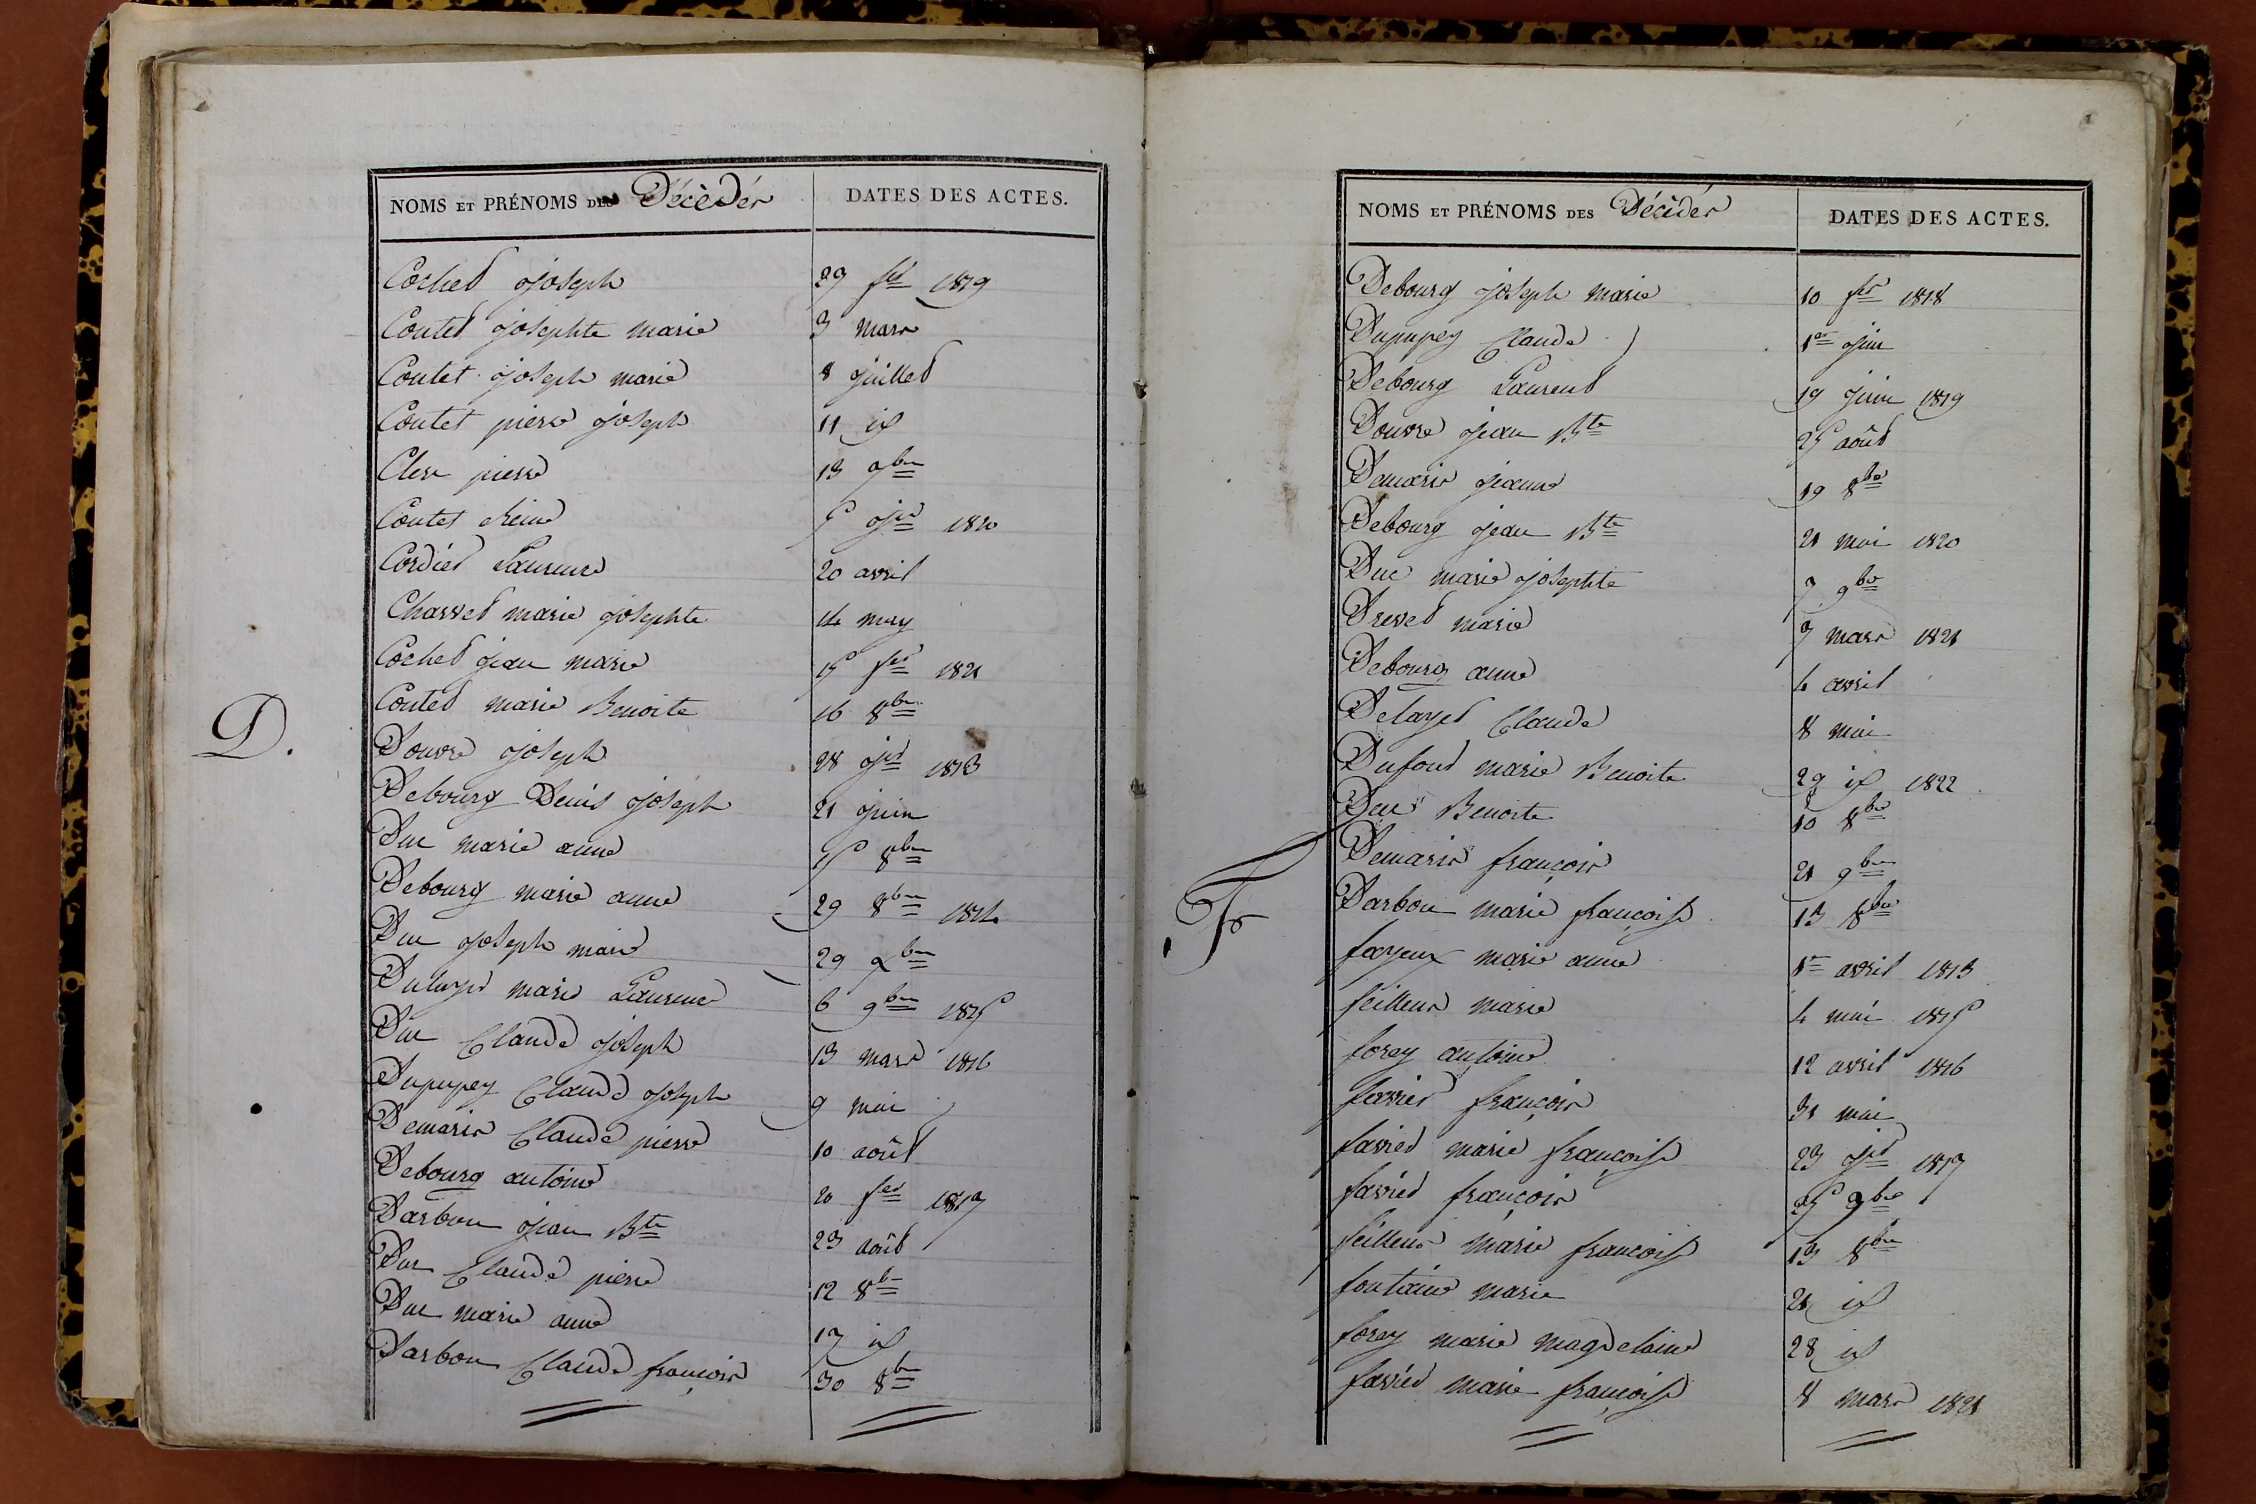 NOMS ET PRÉNOMS DES Décèdés
DATES DES ACTES.
Cochet joseph 29 fer 1819
Coutet josephte marie 3 mars
Coutet joseph marie 8 juillet
Coutet pierre joseph 11 id
Cler pierre 13 9bre
Coutet reine 5 jer 1820
Cordier Laurence 20 avril
Charvet marie josephte 14 may
Cochet jean marie 15 fer 1821
Coutet marie Benoite 16 8bre
D.
Douvre joseph 28 jer 1813
Debourg Denis joseph 21 juin
Duc marie anne 15 8bre
Debourg marie anne 29 8bre 1814
Duc joseph marie 29 xbre
marie Laurence 6 9bre 1815
Duc Claude joseph 13 mars 1816
Dupupey Claude joseph 9 mai
Demaris Claude pierre 10 août
Debourg antoine 20 fer 1817
Darbon jean Bte 23 août
Duc Claude pierre 12 8b
Duc marie anne 17 id
Darbon Claude françois 30 8b
NOMS ET PRÉNOMS DES Décèdés
DATES DES ACTES.
Debourg joseph marie 10 fer 1818
Dupupey Claude 1er juin
Debourg Laurent 19 juin 1819
Douvre jean Bte 25 août
Demaris jeanne 19 8bre
Debourg jean Bte 21 mai 1820
Duc marie josephte 7 9bre
Drevet marie 7 mars 1821
Debourg anne 4 avril
Delayet Claude 8 mai
Dufout marie Benoite 29 id 1822
Duc Benoite 10 8bre
Demaris françois 21 9bre
Darbon marie françoise 13 8bre
F
fayeux marie anne 1er avril 1813
feilleux marie 4 mai 1815
forey antoine 12 avril 1816
favier françois 31 mai
favier marie françoise 23 jer 1817
favier françois 25 9bre
feilleux marie françoise 13 8bre
fontaine marie 21 id
forey marie magdelaine 28 id
favier marie françoise 8 mars 1821